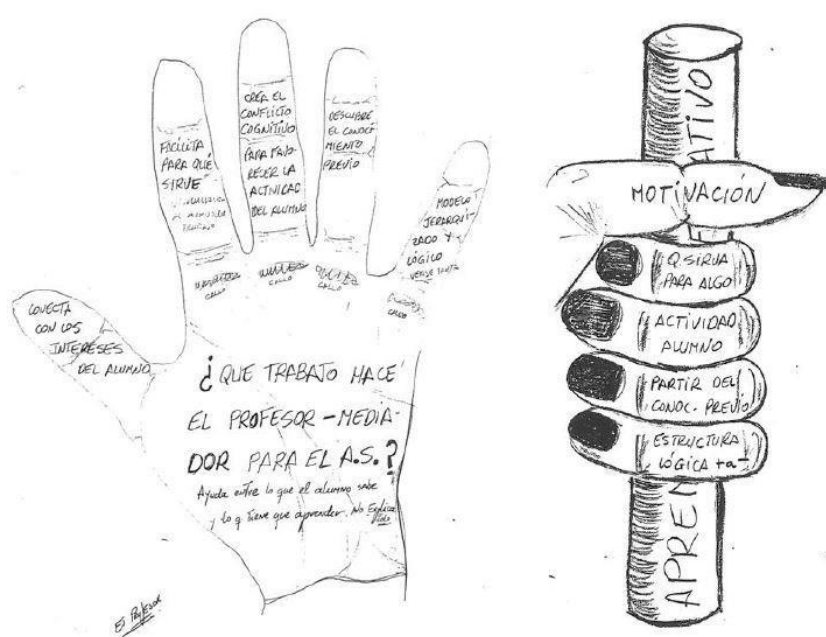 FACILITA
PARA QUÉ
SIRVE
CREA EL
CONFLICTO
COGNITIVO
PARA FAVO-
RECER LA
ACTIVIDAD
DEL ALUMNO
DESCUBRE
EL CONOCI-
MIENTO
PREVIO
MODELO
JERARQUI-
ZADO Y
LÓGICO
CALLO
CALLO
CALLO
CALLO
CONECTA
CON LOS
INTERESES
DEL ALUMNO
¿QUE TRABAJO HACE
EL PROFESOR-MEDIA-
DOR PARA EL A.S.?
Ayuda entre lo que el alumno sabe
y lo q tiene que aprender. No Explica
todo
El Profesor
ATIVO
MOTIVACIÓN
Q. SIRVA
PARA ALGO
ACTIVIDAD
ALUMNO
PARTIR DEL
CONOC. PREVIO
ESTRUCTURA
LÓGICA +a-
APREN